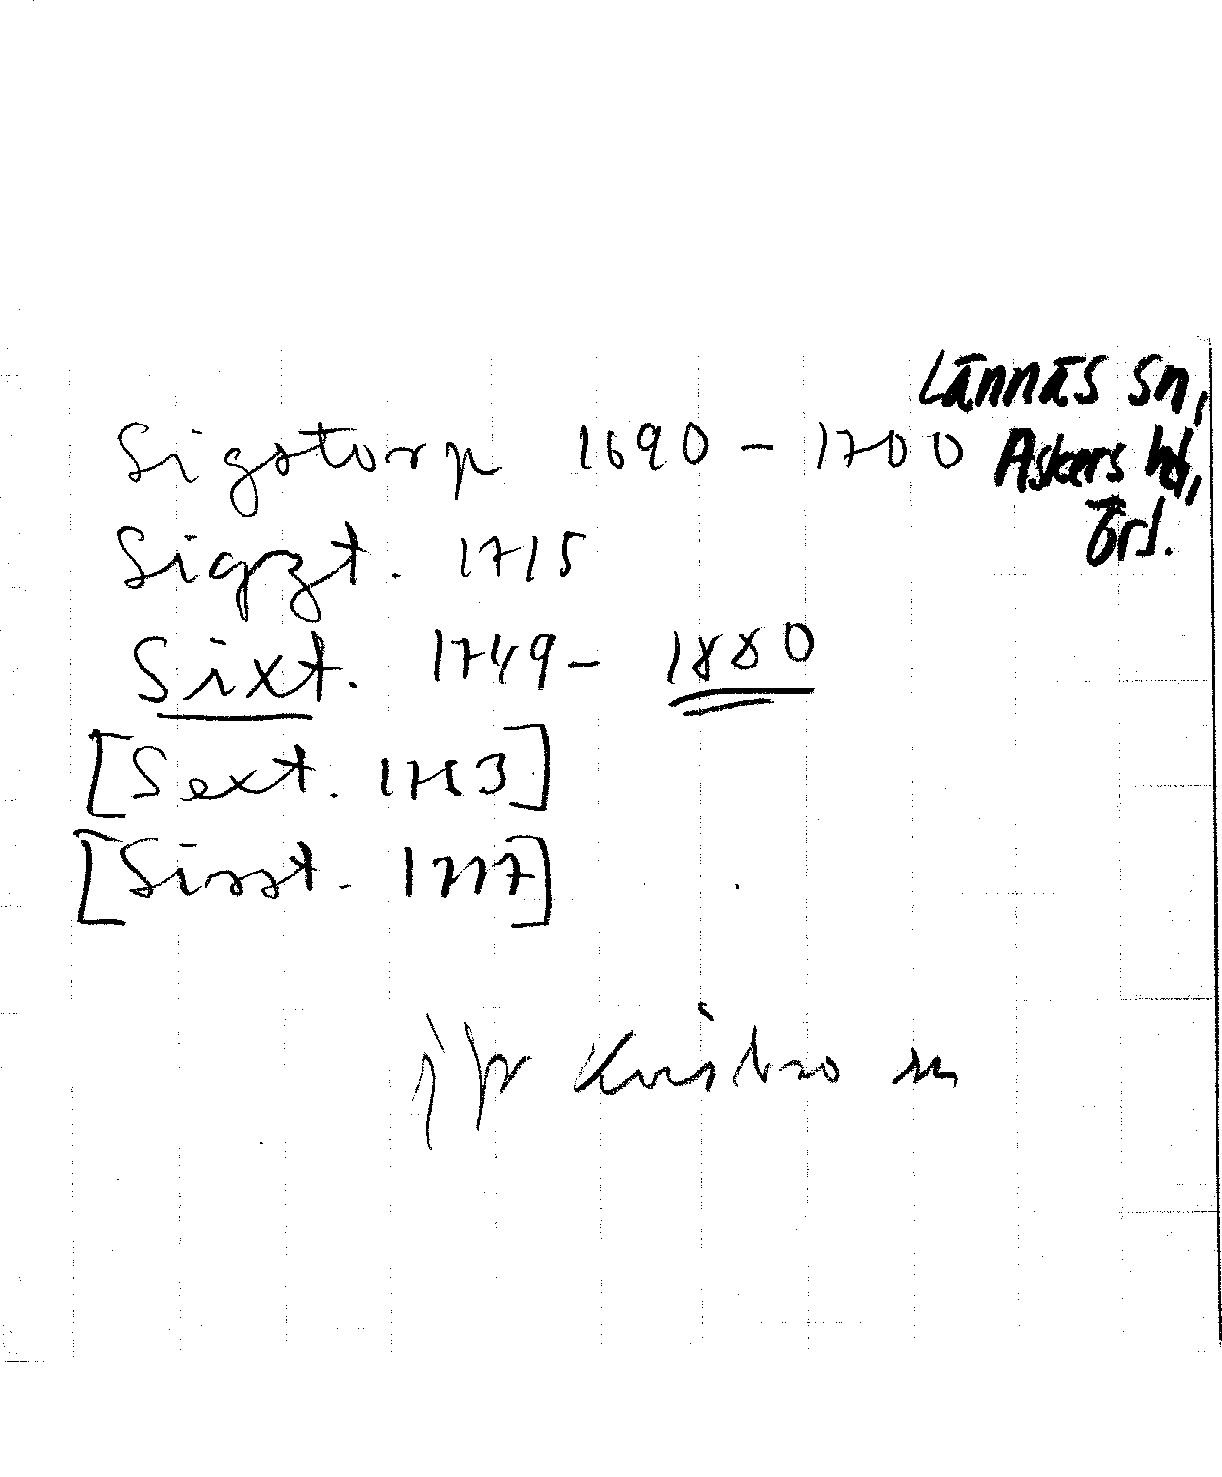 Lännäs sn,
Askers hd,
Örsl.
Sigstorp 1690 - 1700
Sigzt. 1715
Sixt. 1749 - 1880
[Sext. 1753]
[Sisst. 1777]